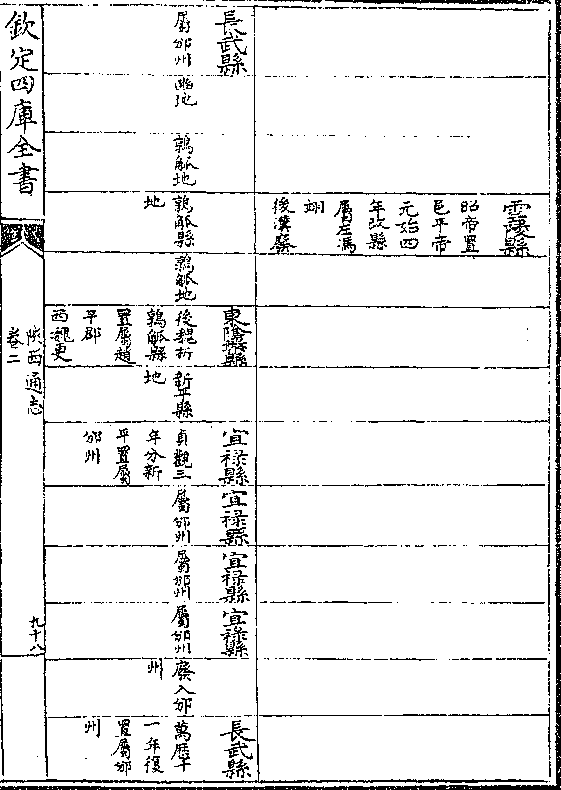 雲陵縣
昭帝置
邑平帝
元始四
年改縣
屬左馮
翊
後漢廢
長武縣
屬邠州
豳地
鶉觚地
鶉觚縣
地
鶉觚地
東隂縣
後魏析
鶉觚縣
置屬趙
平郡
西魏更
新平縣
地
宜祿縣
貞觀三
年分新
平置屬
邠州
宜祿縣
屬邠州
宜祿縣
屬邠州
宜祿縣
屬邠州
廢入邠
州
長武縣
萬歷十
一年復
置屬邠
州
欽定四庫全書
陜西通志
卷二
九十八